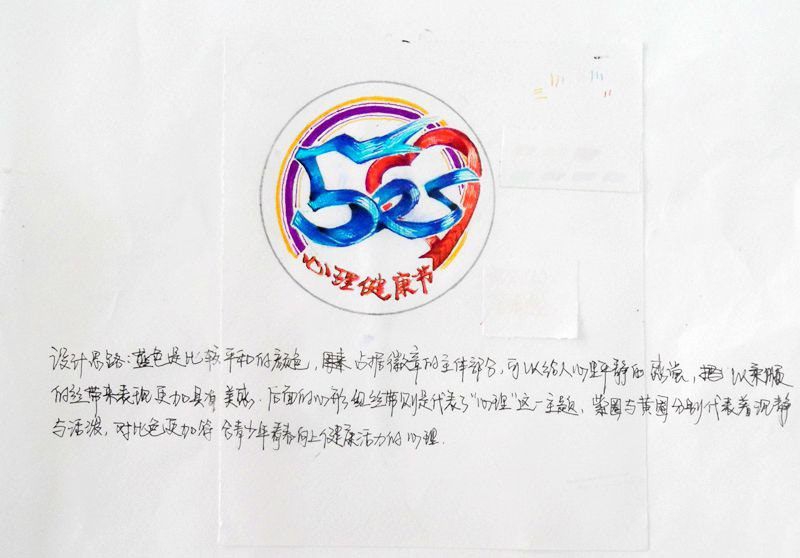 525
心理健康节
设计思路:蓝色是比较平和的颜色,用来占据徽章的主体部分,可以给人心里平静的感觉,把以柔顺
的丝带来表现更加具有美感.后面的心形红丝带则是代表了"心理"这一主题,紫圈与黄圈分别代表着沉静
与活泼,对比色更加符合青少年青春向上健康活力的心理.